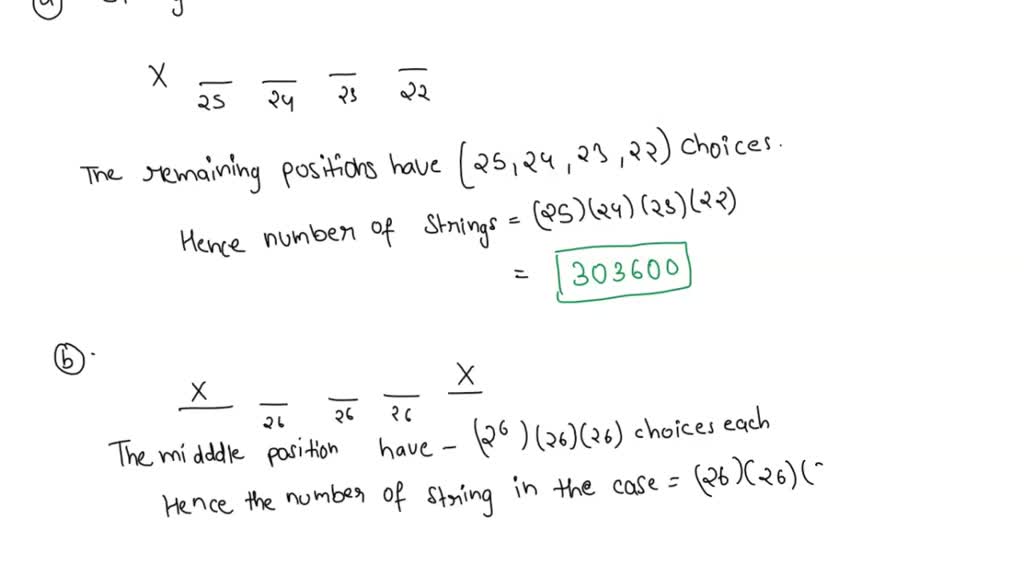 (a)
X 25 24 23 22
The remaining positions have (25, 24, 23, 22) choices.
Hence number of strings = (25)(24)(23)(22)
= 303600
(b).
X 26 26 26 X
The midddle position have - (26)(26)(26) choices each
Hence the number of string in the case = (26)(26)(